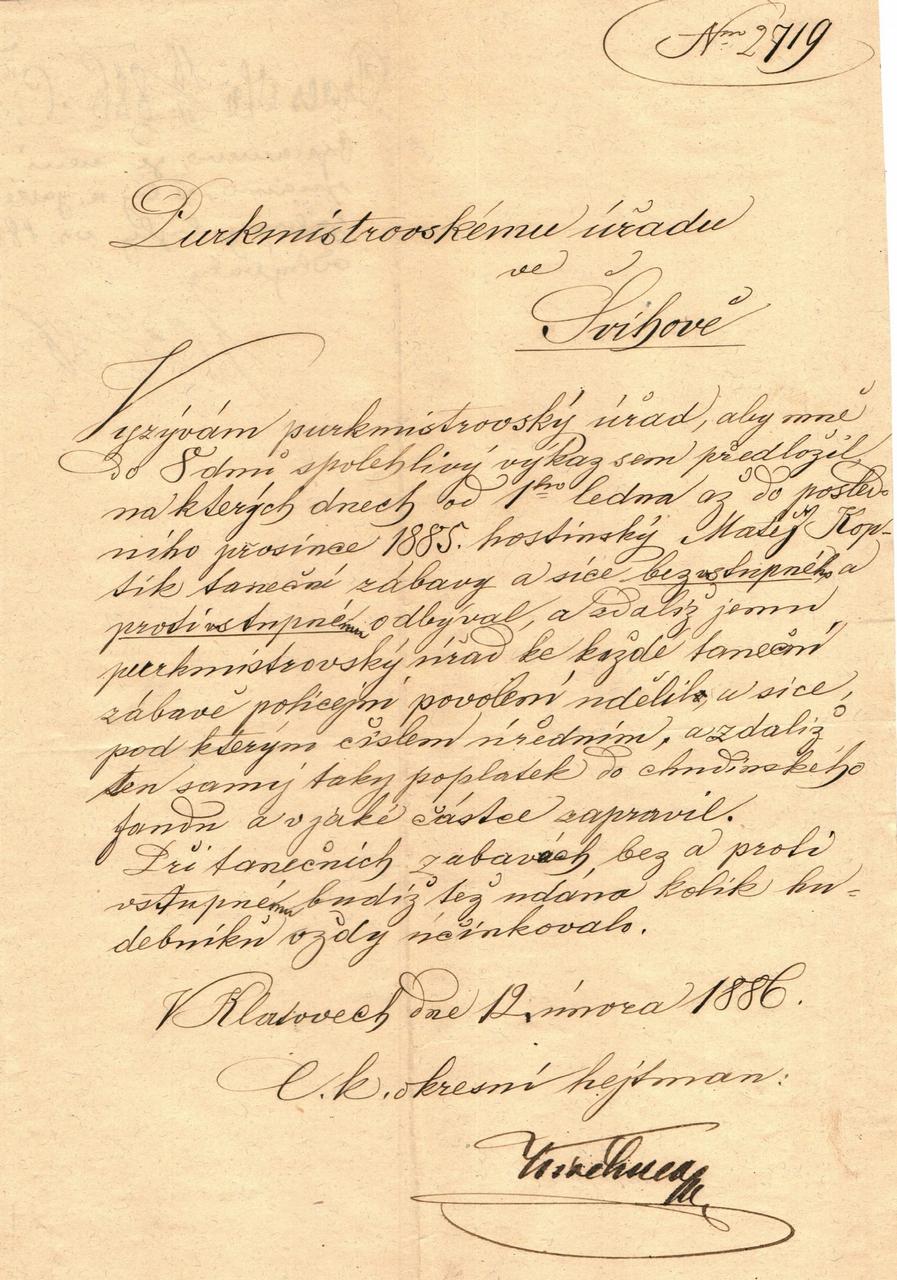 Nro 2719
Purkmistrovskému úřadu
ve
Švihově
Vyzývám purkmistrovský úřad, aby mně
do 8 dnů spolehlivý výkaz sem předložil,
na kterých dnech od 1ho ledna až do posled-
ního prosince 1885. hostinský Matěj Kop-
tik taneční zábavy a sice bez vstupného a
proti vstupnému odbýval, a zdaliž jemu
purkmistrovský úřad ke každé taneční
zábavě policejní povolení udělil, a sice,
pod kterým číslem úředním, a zdaliž
ten samý taky poplatek do chudinského
fondu a v jaké částce zapravil.
Při tanečních zábavách bez a proti
vstupnému budiž též udáno kolik hu-
debníků vždy účinkovalo.
V Klatovech dne 12. února 1886.
C. k. okresní hejtman: